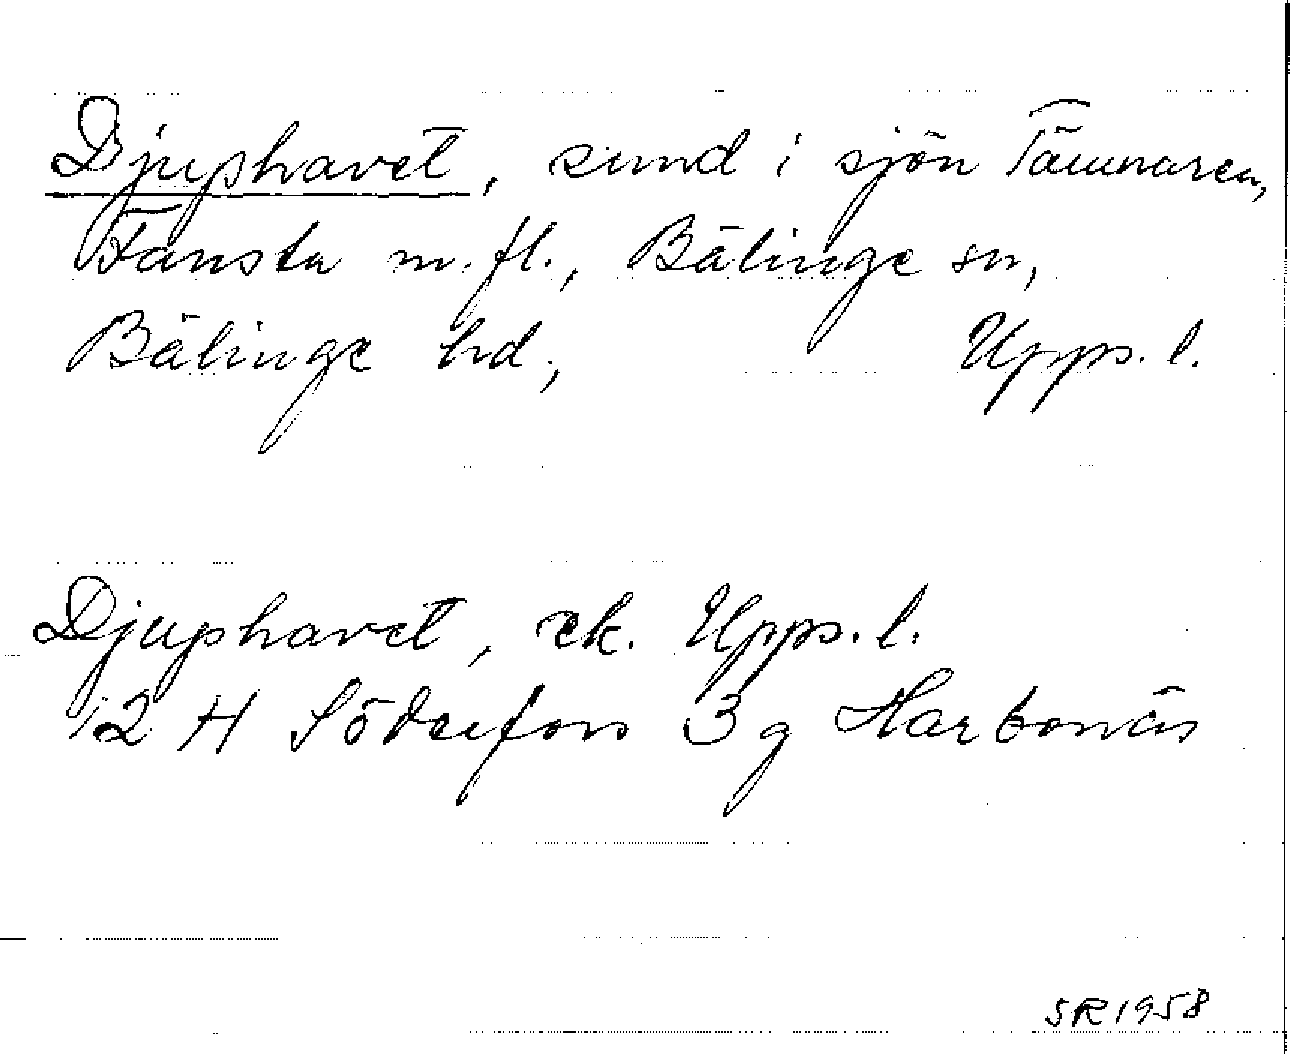 Djuphavet, sund i sjön Tämnaren,
Fansta m.fl., Bälinge sn,
Bälinge hd, Upps. l.
Djuphavet, ek. Upps. l.
12 H Söderfors 3 g Harbonäs
SR 1958